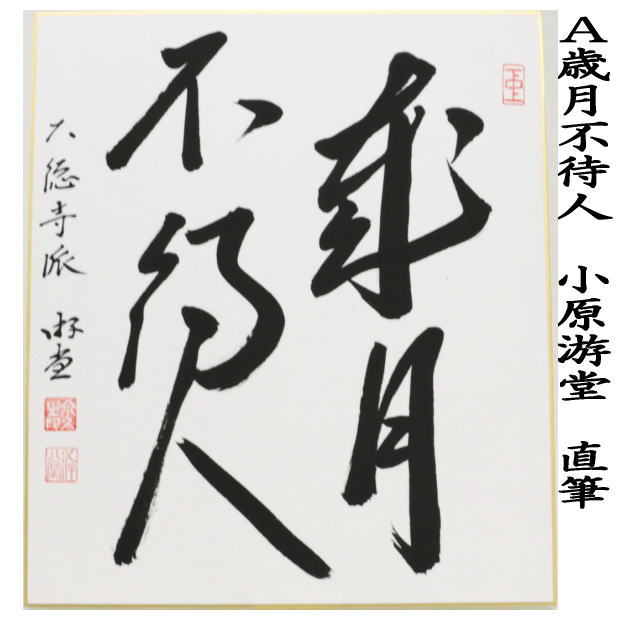 A歳月不待人 小原游堂 直筆
歳月
不待人
大徳寺派 游堂